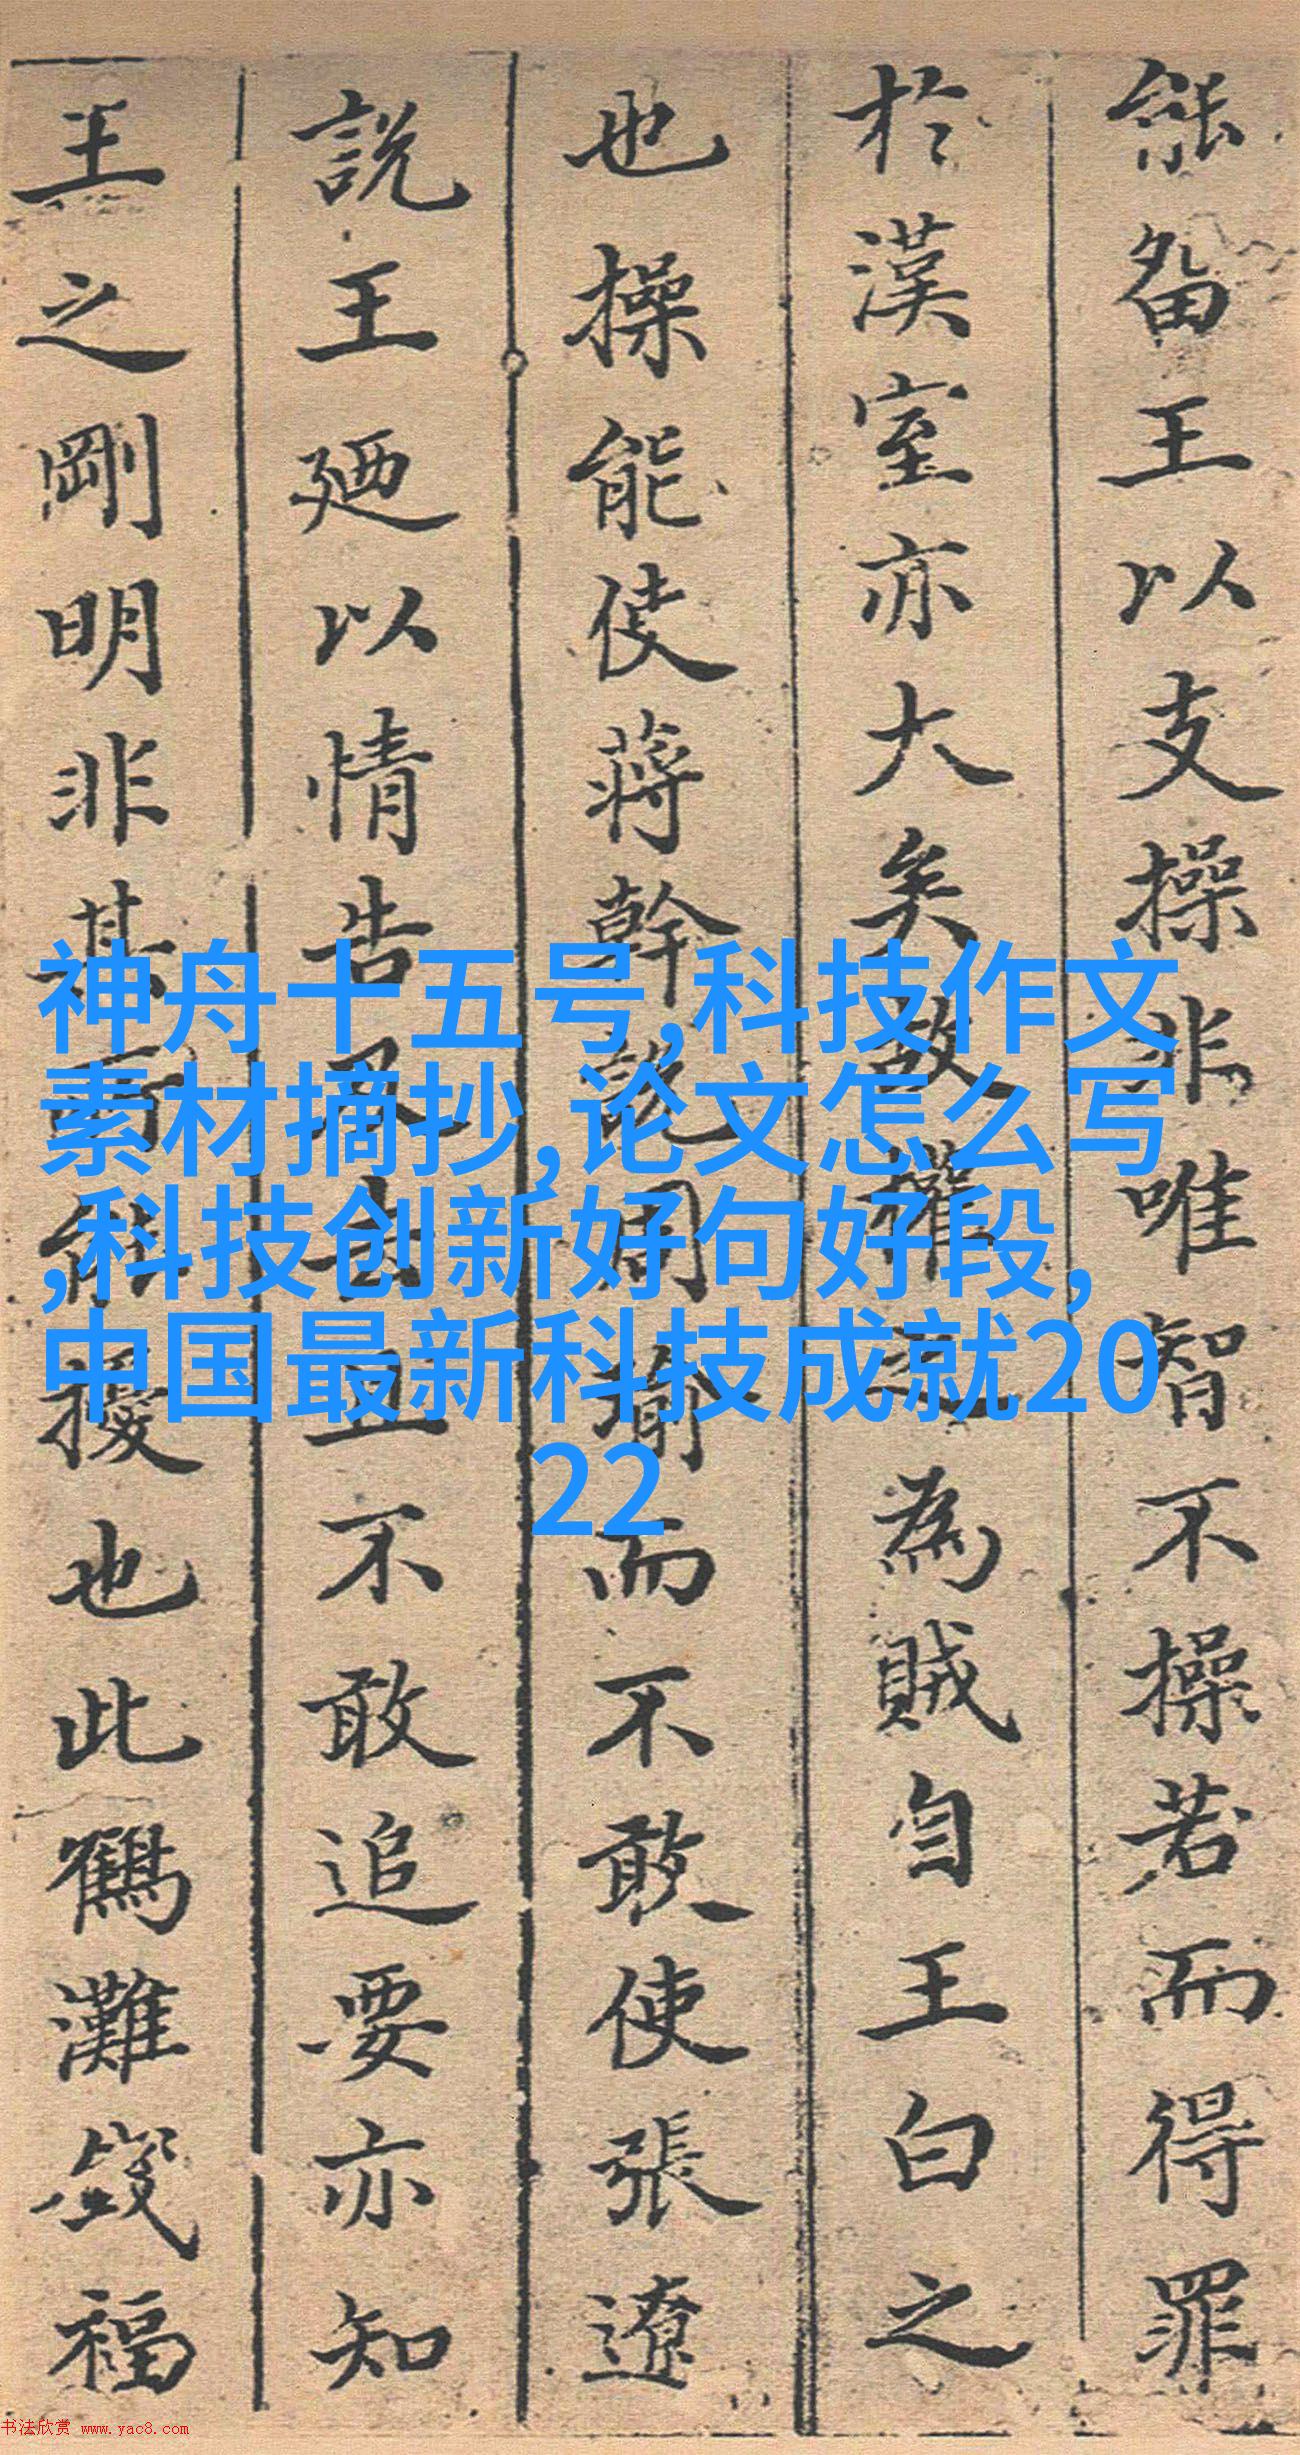 能留王以支操非唯智不操若而得罪
於漢室亦大矣故權之為賊自王白之
也操能使蔣幹說周瑜而不敢使張遼
說王廼以情告去且不敢追要亦知
王之剛明非其所能擾也此鶴灘福
神舟十五号,科技作文
素材摘抄,论文怎么写
,科技创新好句好段,
中国最新科技成就20
22
书法欣赏 www.yac8.com